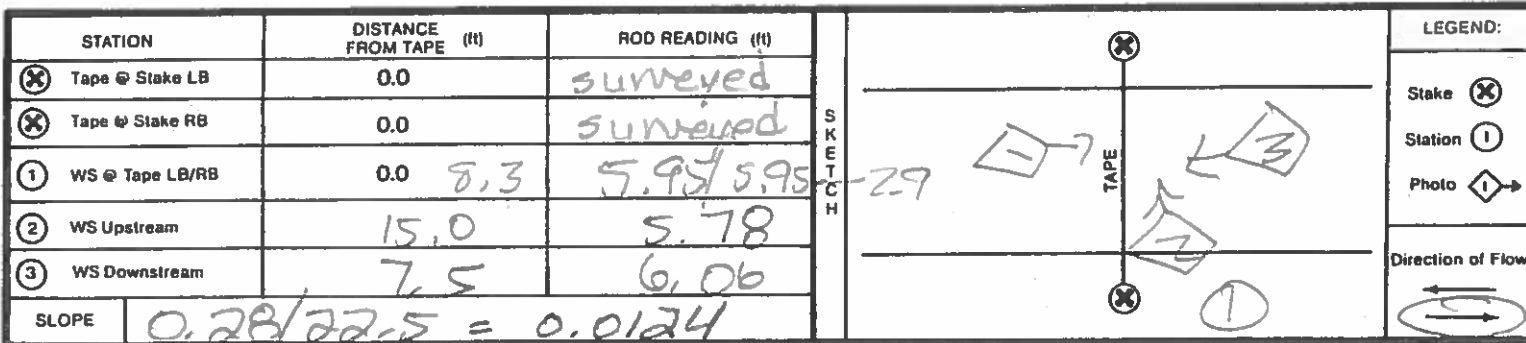 STATION DISTANCE FROM TAPE (ft) ROD READING (ft)
Tape @ Stake LB 0.0 surveyed
Tape @ Stake RB 0.0 surveyed
1 WS @ Tape LB/RB 0.0 8.3 5.95/5.95 -2.9
2 WS Upstream 15.0 5.78
3 WS Downstream 7.5 6.06
SLOPE 0.28/22.5 = 0.0124
SKETCH
TAPE
1
3
2
1
LEGEND:
Stake
Station 1
Photo 1
Direction of Flow